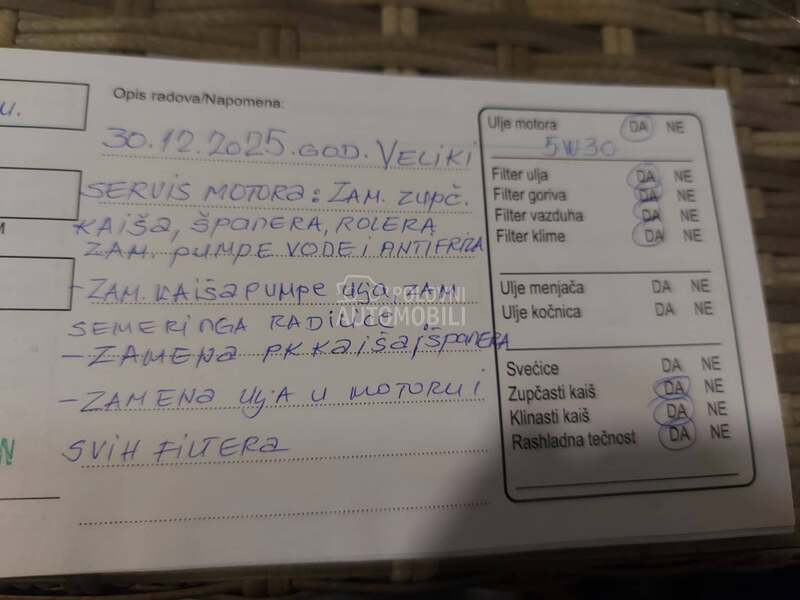 u.
Opis radova/Napomena:
30.12.2025.GOD. VELIKI
SERVIS MOTORA: ZAM. ZUPČ.
KAIŠA, ŠPANERA, ROLERA
ZAM. PUMPE VODE I ANTIFRIZA
- ZAM. KAIŠA PUMPE ULJA, ZAM
SEMERINGA RADILICE.
- ZAMENA PK KAIŠA, ŠPANERA
- ZAMENA ULJA U MOTORU I
SVIH FILTERA
POLOVNI
AUTOMOBILI
Ulje motora DA NE
5W30
Filter ulja DA NE
Filter goriva DA NE
Filter vazduha DA NE
Filter klime DA NE
Ulje menjača DA NE
Ulje kočnica DA NE
Svećice DA NE
Zupčasti kaiš DA NE
Klinasti kaiš DA NE
Rashladna tečnost DA NE